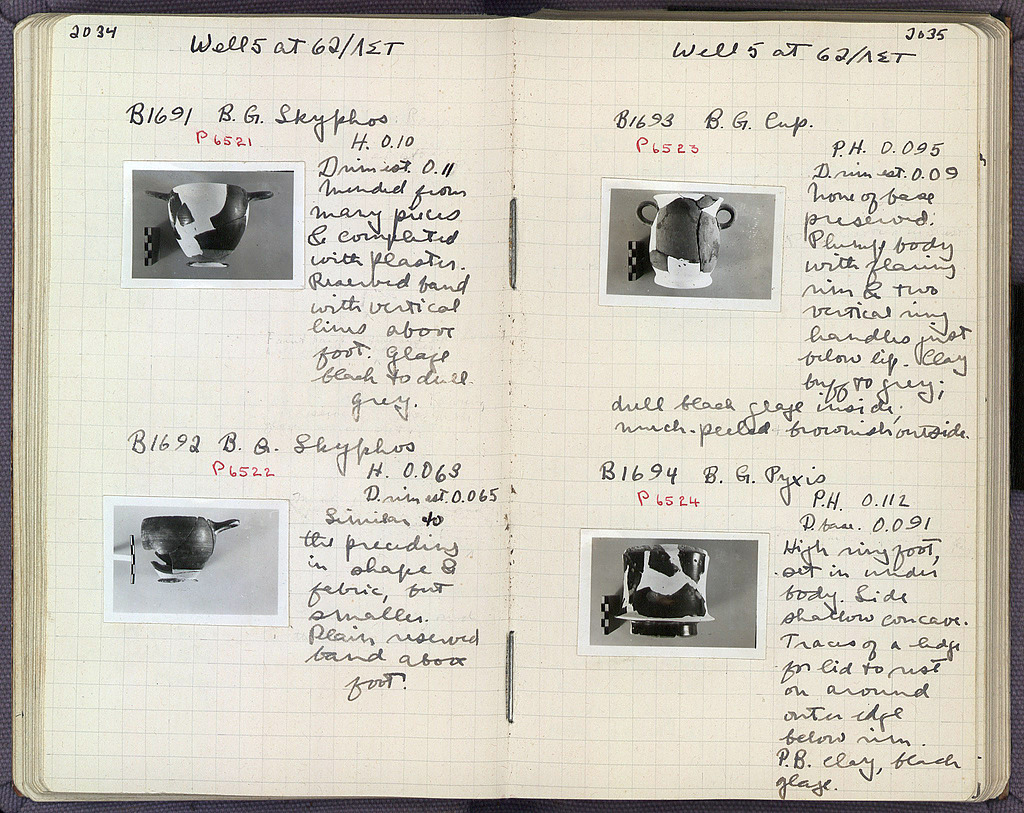 2034
Well 5 at 62/ΛΣΤ
B1691 B.G. Skyphos
P 6521
H. 0.10
D. rim est. 0.11
Mended from
many pieces
& completed
with plaster.
Reserved band
with vertical
lines above
foot. Glaze
black to dull
grey.
B1692 B.G. Skyphos
P 6522
H. 0.063
D. rim est. 0.065
Similar to
the preceding
in shape &
fabric, but
smaller.
Plain reserved
band above
foot.
2035
Well 5 at 62/ΛΣΤ
B1693 B.G. Cup.
P 6523
P.H. 0.095
D. rim est. 0.09
None of base
preserved.
Plump body
with flaring
rim & two
vertical ring
handles just
below lip. Clay
buff to grey;
dull black glaze inside;
much-peeled brownish outside.
B1694 B.G. Pyxis
P 6524
P.H. 0.112
D. base. 0.091
High ring foot,
set in under
body. Side
shallow concave.
Traces of a ledge
for lid to rest
on around
outer edge
below rim.
P.B. clay, black
glaze.